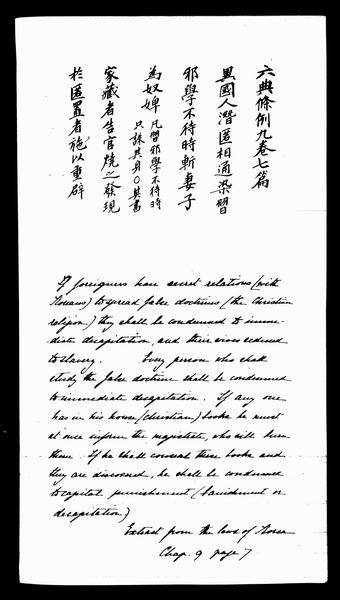 六典條例九卷七篇
異國人潛匿相通染習
邪學不待時斬妻子
為奴婢凡習邪學不待時
只誅其身〇其書
家藏者告官燒之發現
於匿置者施以重辟
If foreigners have secret relations (with
Koreans) to spread false doctrines (the Christian
religion) they shall be condemned to imme-
diate decapitation, and their wives reduced
to slavery. Every person who shall
study the false doctrine shall be condemned
to immediate decapitation. If any one
has in his house (Christian) books he must
at once inform the magistrate, who will burn
them. If he shall conceal these books and
they are discovered, he shall be condemned
to capital punishment (banishment or
decapitation)
Extract from the laws of Korea
Chap. 9 page 7